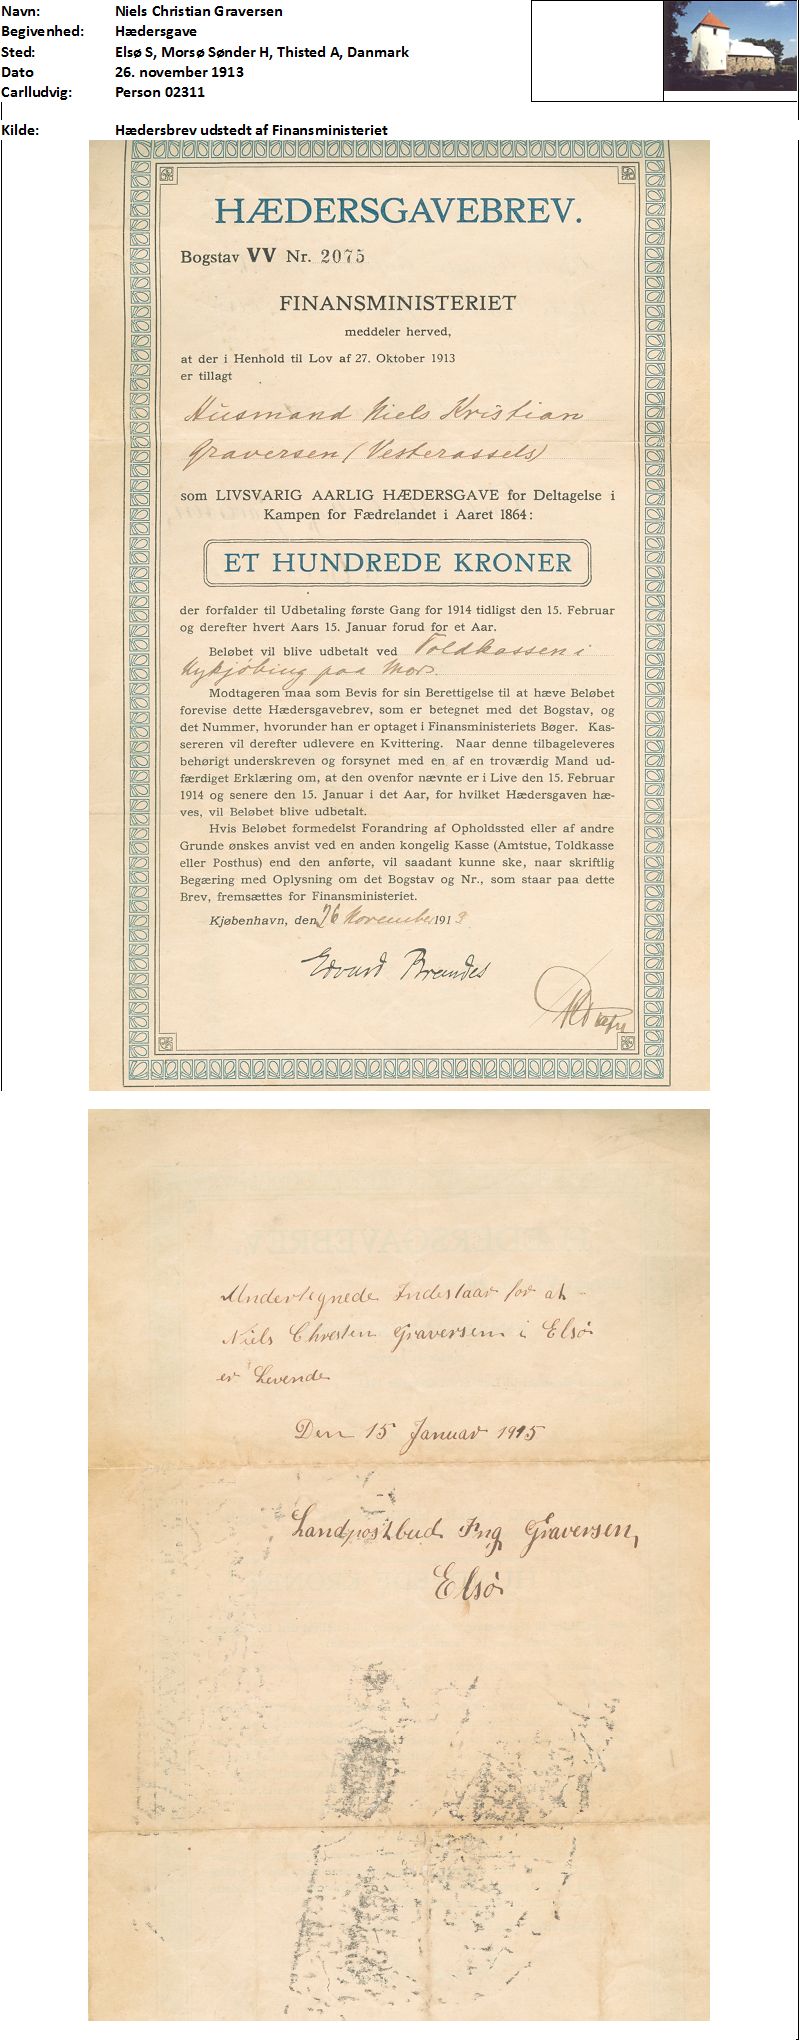 Navn: Niels Christian Graversen
Begivenhed: Hædersgave
Sted: Elsø S, Morsø Sønder H, Thisted A, Danmark
Dato 26. november 1913
Carlludvig: Person 02311
Kilde: Hædersbrev udstedt af Finansministeriet
HÆDERSGAVEBREV.
Bogstav VV Nr. 2075
FINANSMINISTERIET
meddeler herved,
at der i Henhold til Lov af 27. Oktober 1913
er tillagt
Husmand Niels Kristian
Graversen (Vesterassels)
som LIVSVARIG AARLIG HÆDERSGAVE for Deltagelse i
Kampen for Fædrelandet i Aaret 1864:
ET HUNDREDE KRONER
der forfalder til Udbetaling første Gang for 1914 tidligst den 15. Februar
og derefter hvert Aars 15. Januar forud for et Aar.
Beløbet vil blive udbetalt ved Toldkassen i
Nykjøbing paa Mors.
Modtageren maa som Bevis for sin Berettigelse til at hæve Beløbet
forevise dette Hædersgavebrev, som er betegnet med det Bogstav, og
det Nummer, hvorunder han er optaget i Finansministeriets Bøger. Kas-
sereren vil derefter udlevere en Kvittering. Naar denne tilbageleveres
behørigt underskreven og forsynet med en af en troværdig Mand ud-
færdiget Erklæring om, at den ovenfor nævnte er i Live den 15. Februar
1914 og senere den 15. Januar i det Aar, for hvilket Hædersgaven hæ-
ves, vil Beløbet blive udbetalt.
Hvis Beløbet formedelst Forandring af Opholdssted eller af andre
Grunde ønskes anvist ved en anden kongelig Kasse (Amtstue, Toldkasse
eller Posthus) end den anførte, vil saadant kunne ske, naar skriftlig
Begæring med Oplysning om det Bogstav og Nr., som staar paa dette
Brev, fremsættes for Finansministeriet.
Kjøbenhavn, den 26 November 1913
Edvard Brandes
HÆDERSGAVEBREV.
Undertegnede Indestaar for at
Niels Chresten Graversen i Elsø
er Levende
Den 15 Januar 1915
Landpostbud Ing Graversen,
Elsø